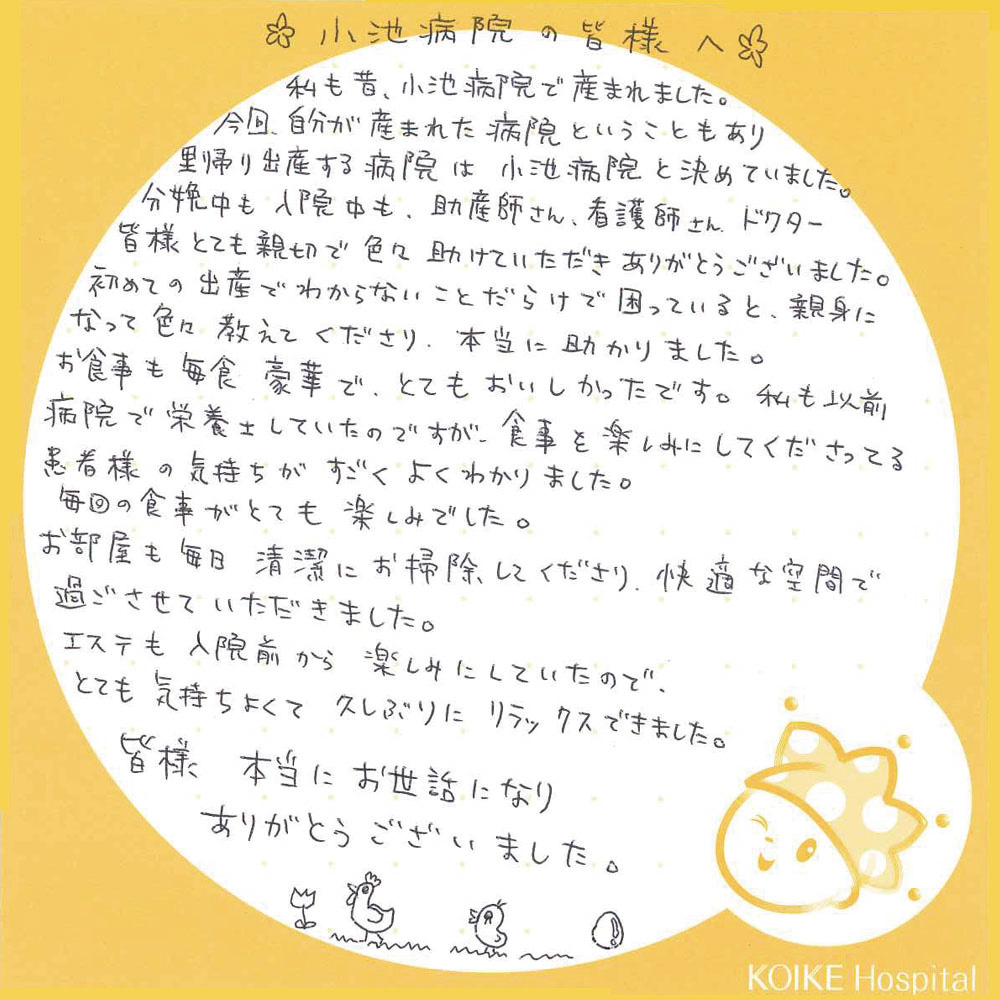 小池病院の皆様へ
私も昔、小池病院で産まれました。
今回、自分が産まれた病院ということもあり
里帰り出産する病院は小池病院と決めていました。
分娩中も入院中も、助産師さん、看護師さん、ドクター
皆様とても親切で色々助けていただきありがとうございました。
初めての出産でわからないことだらけで困っていると、親身に
なって色々教えてくださり、本当に助かりました。
お食事も毎食豪華で、とてもおいしかったです。私も以前
病院で栄養士していたのですが、食事を楽しみにしてくださってる
患者様の気持ちがすごくよくわかりました。
毎回の食事がとても楽しみでした。
お部屋も毎日清潔にお掃除してくださり、快適な空間で
過ごさせていただきました。
エステも入院前から楽しみにしていたので、
とても気持ちよくて久しぶりにリラックスできました。
皆様 本当にお世話になり
ありがとうございました。
KOIKE Hospital